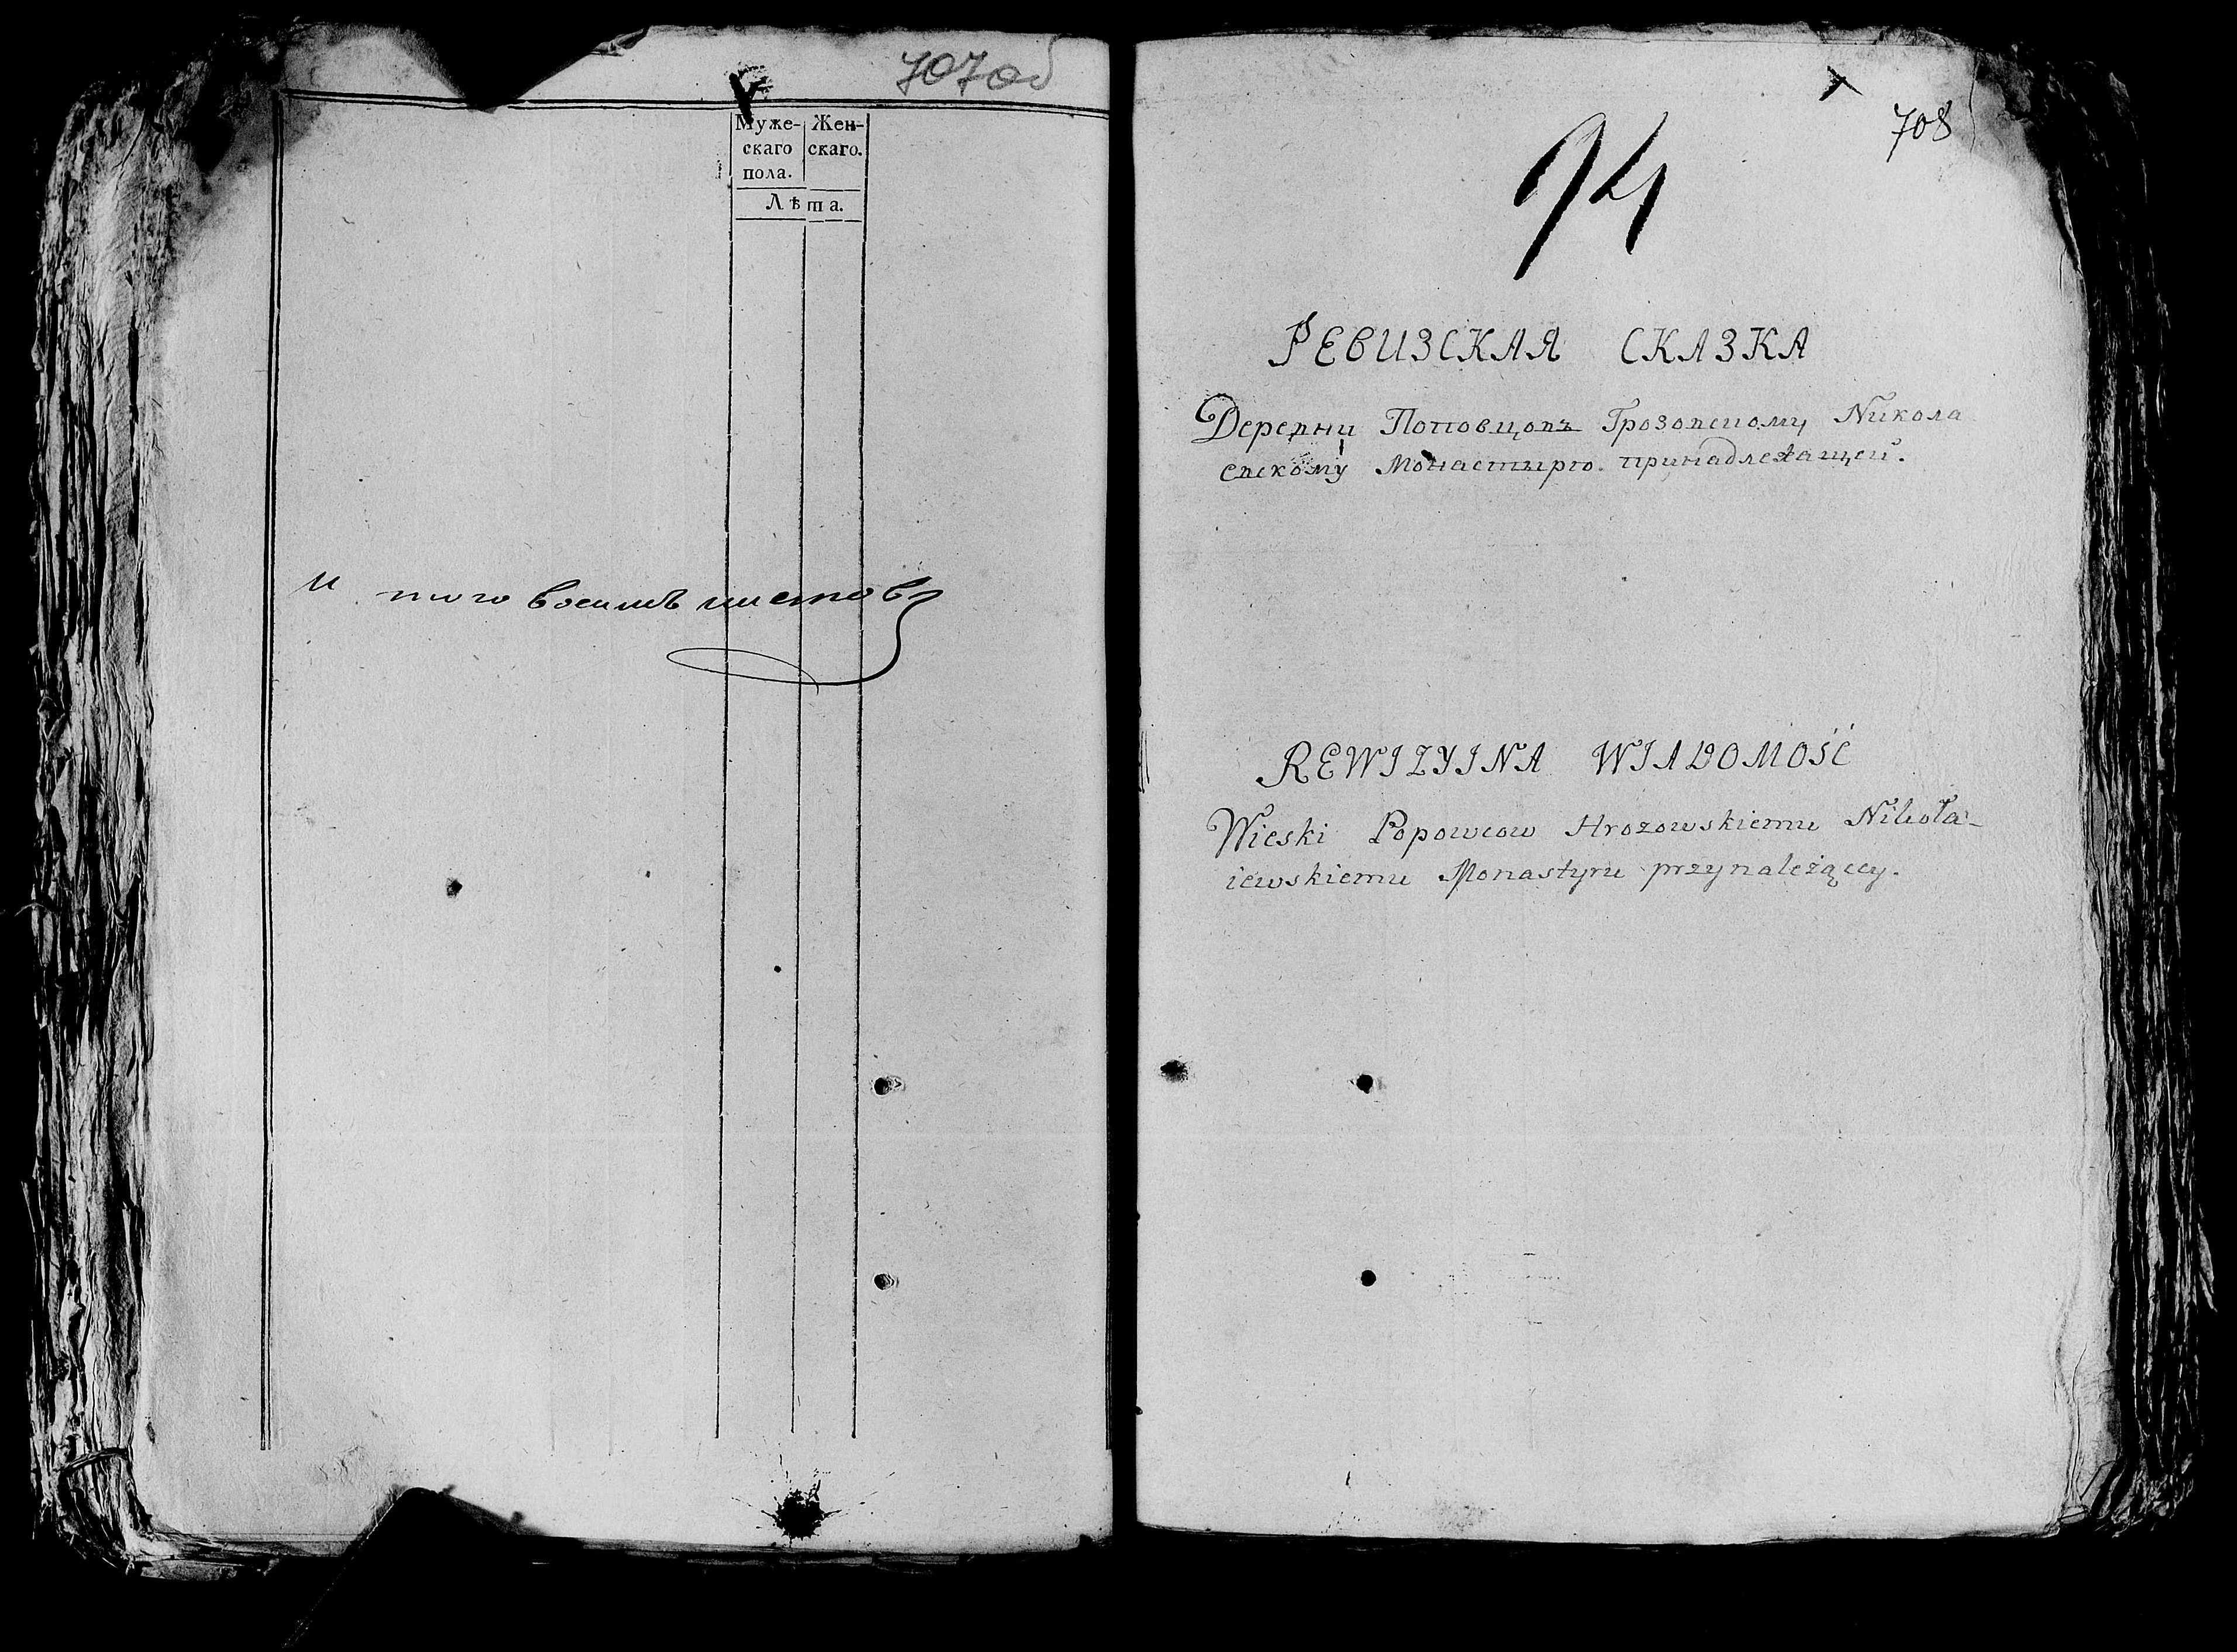 707об
Муже- Жен-
скаго скаго.
пола.
Лѣта.
И того восимъ листовъ
708
94
РЕВИЗСКАЯ СКАЗКА
Деревни Поповцовъ Грозовскому Никола
евскому Монастырю принадлежащей.
REWIZYINA WIADOMOŚĆ
Wieski Popowcow Hrozowskiemu Nikoła-
iewskiemu Monastyru przynależącey.